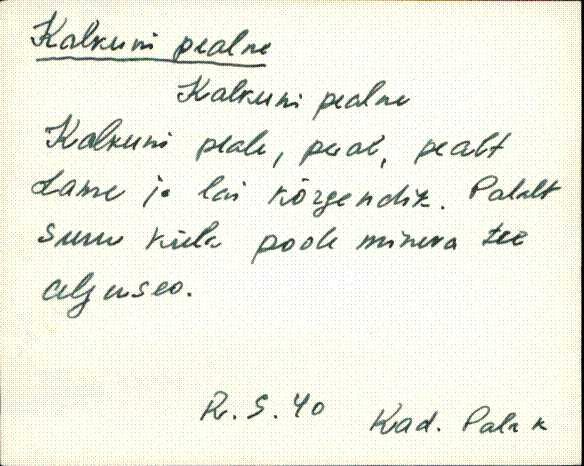 Kalkuni pealne
Kalkuni pealne
Kalkuni peale, peal, pealt
Lame ja lai kõrgendik.
Suure küla poole mineva tee
alguses.
R. S. 40 Kad. Palak